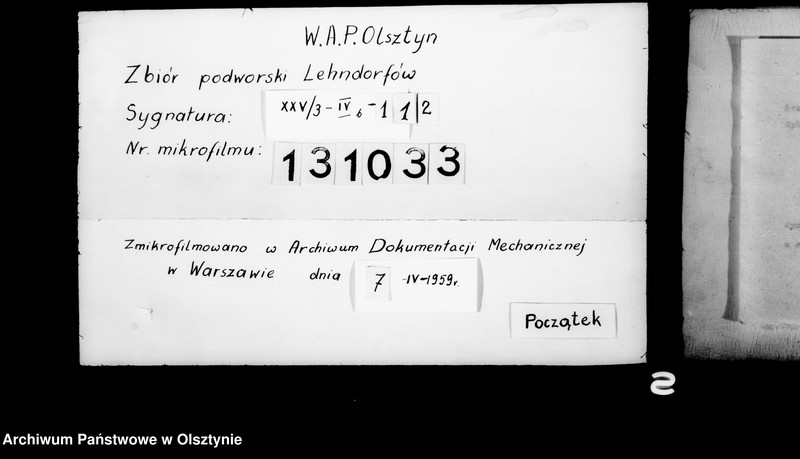 W.A.P. Olsztyn
Zbiór podworski Lehndorfów
Sygnatura: XXV/3-IV b-1 1|2
Nr. mikrofilmu: 131033
Zmikrofilmowano w Archiwum Dokumentacji Mechanicznej
w Warszawie dnia 7 -IV-1959r.
Początek
S
Archiwum Państwowe w Olsztynie